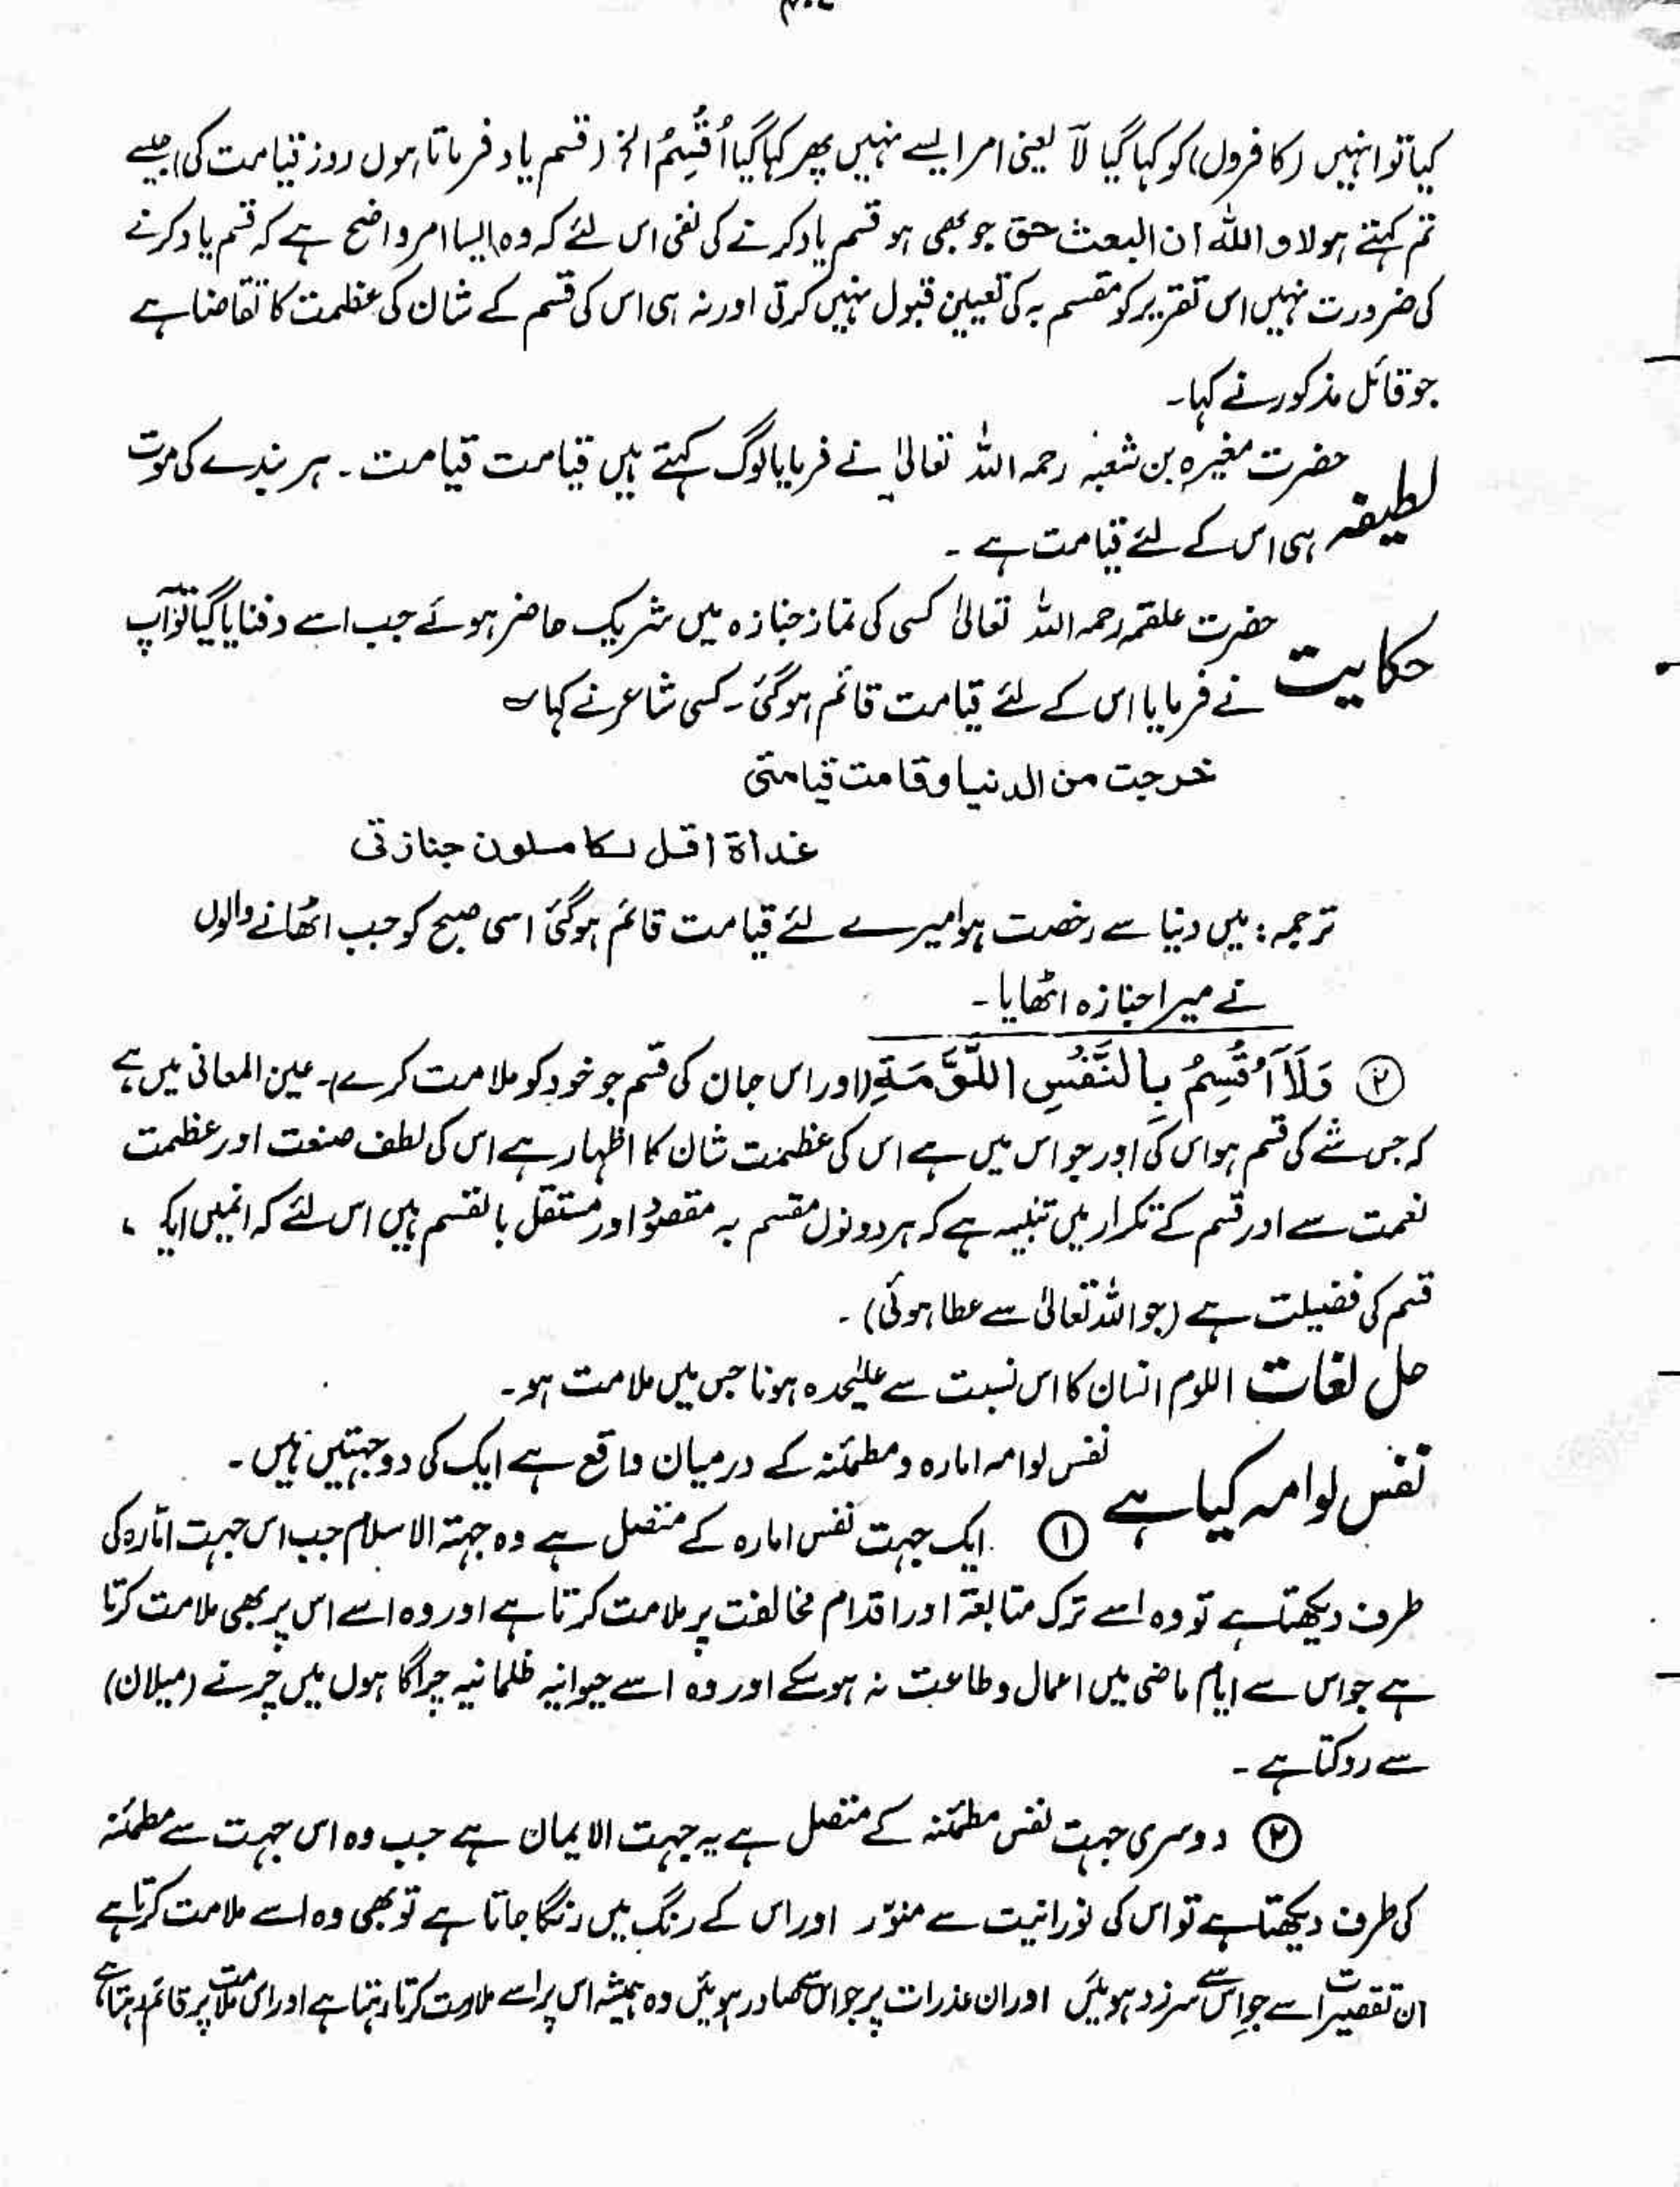 کیا تو انہیں (کافروں) کو کہا گیا لآ یعنی امر ایسے نہیں پھر کہا گیا اُقْسِمُ الخ (قسم یاد فرماتا ہوں روز قیامت کی) جیسے
تم کہتے ہو لا و اللہ ان البعث حق جو بھی ہو قسم یاد کرنے کی نفی اس لئے کہ وہ ایسا امر واضح ہے کہ قسم یاد کرنے
کی ضرورت نہیں اس تقریر کو مقسم بہ کی تعیین قبول نہیں کرتی اور نہ ہی اس کی قسم کے شان کی عظمت کا تقاضا ہے
جو قائل مذکور نے کہا۔
لطیفہ حضرت مغیرہ بن شعبہ رحمہ اللہ تعالیٰ نے فرمایا لوگ کہتے ہیں قیامت قیامت ۔ ہر بندے کی موت
ہی اس کے لئے قیامت ہے ۔
حکایت حضرت علقمہ رحمہ اللہ تعالیٰ کسی کی نماز جنازہ میں شریک حاضر ہوئے جب اسے دفنایا گیا تو آپ
نے فرمایا اس کے لئے قیامت قائم ہوگئی ۔ کسی شاعر نے کہا ؎
خرجت من الدنیا و قامت قیامتی
غداة اقل الحاملون جنازتی
ترجمہ : میں دنیا سے رخصت ہوا میرے لئے قیامت قائم ہوگئی اسی صبح کو جب اٹھانے والوں
نے میرا جنازہ اٹھایا ۔
② وَلَآ اُقْسِمُ بِالنَّفْسِ اللَّوَّامَةِ (اور اس جان کی قسم جو خود کو ملامت کرے)۔ عین المعانی میں ہے
کہ جس شے کی قسم ہو اس کی اور جو اس میں ہے اس کی عظمت شان کا اظہار ہے اس کی لطف صنعت اور عظمت
نعمت سے اور قسم کے تکرار میں تنبیہ ہے کہ ہر دونوں مقسم بہ مقصود اور مستقل بالقسم ہیں اس لئے کہ انمیں ایک ،
قسم کی فضیلت ہے (جو اللہ تعالیٰ سے عطا ہوئی) ۔
حل لغات اللوم انسان کا اس نسبت سے علیحدہ ہونا جس میں ملامت ہو ۔
نفس لوامہ کیا ہے نفس لوامہ امارہ و مطمئنہ کے درمیان واقع ہے ایک کی دو جہتیں ہیں ۔
① ایک جہت نفس امارہ کے متصل ہے وہ جہۃ الاسلام جب اس جہت امّارہ کی
طرف دیکھتا ہے تو وہ اسے ترک متابعۃ اور اقدام مخالفت پر ملامت کرتا ہے اور وہ اسے اس پر بھی ملامت کرتا
ہے جو اس سے ایام ماضی میں اعمال و طاعت نہ ہو سکے اور وہ اسے حیوانیہ ظلمانیہ چراگاہوں میں چرنے (میلان)
سے روکتا ہے ۔
② دوسری جہت نفس مطمئنہ کے متصل ہے یہ جہت الایمان ہے جب وہ اس جہت سے مطمئنہ
کی طرف دیکھتا ہے تو اس کی نورانیت سے منوّر اور اس کے رنگ میں رنگا جاتا ہے تو بھی وہ اسے ملامت کرتا ہے
ان تقصیرات سے جو اس سے سرزد ہوئیں اور ان عذرات پر جو اس سے صادر ہوئیں وہ ہمیشہ اس پر اسے ملامت کرتا رہتا ہے اور اس ملامت پر قائم رہتا ہے